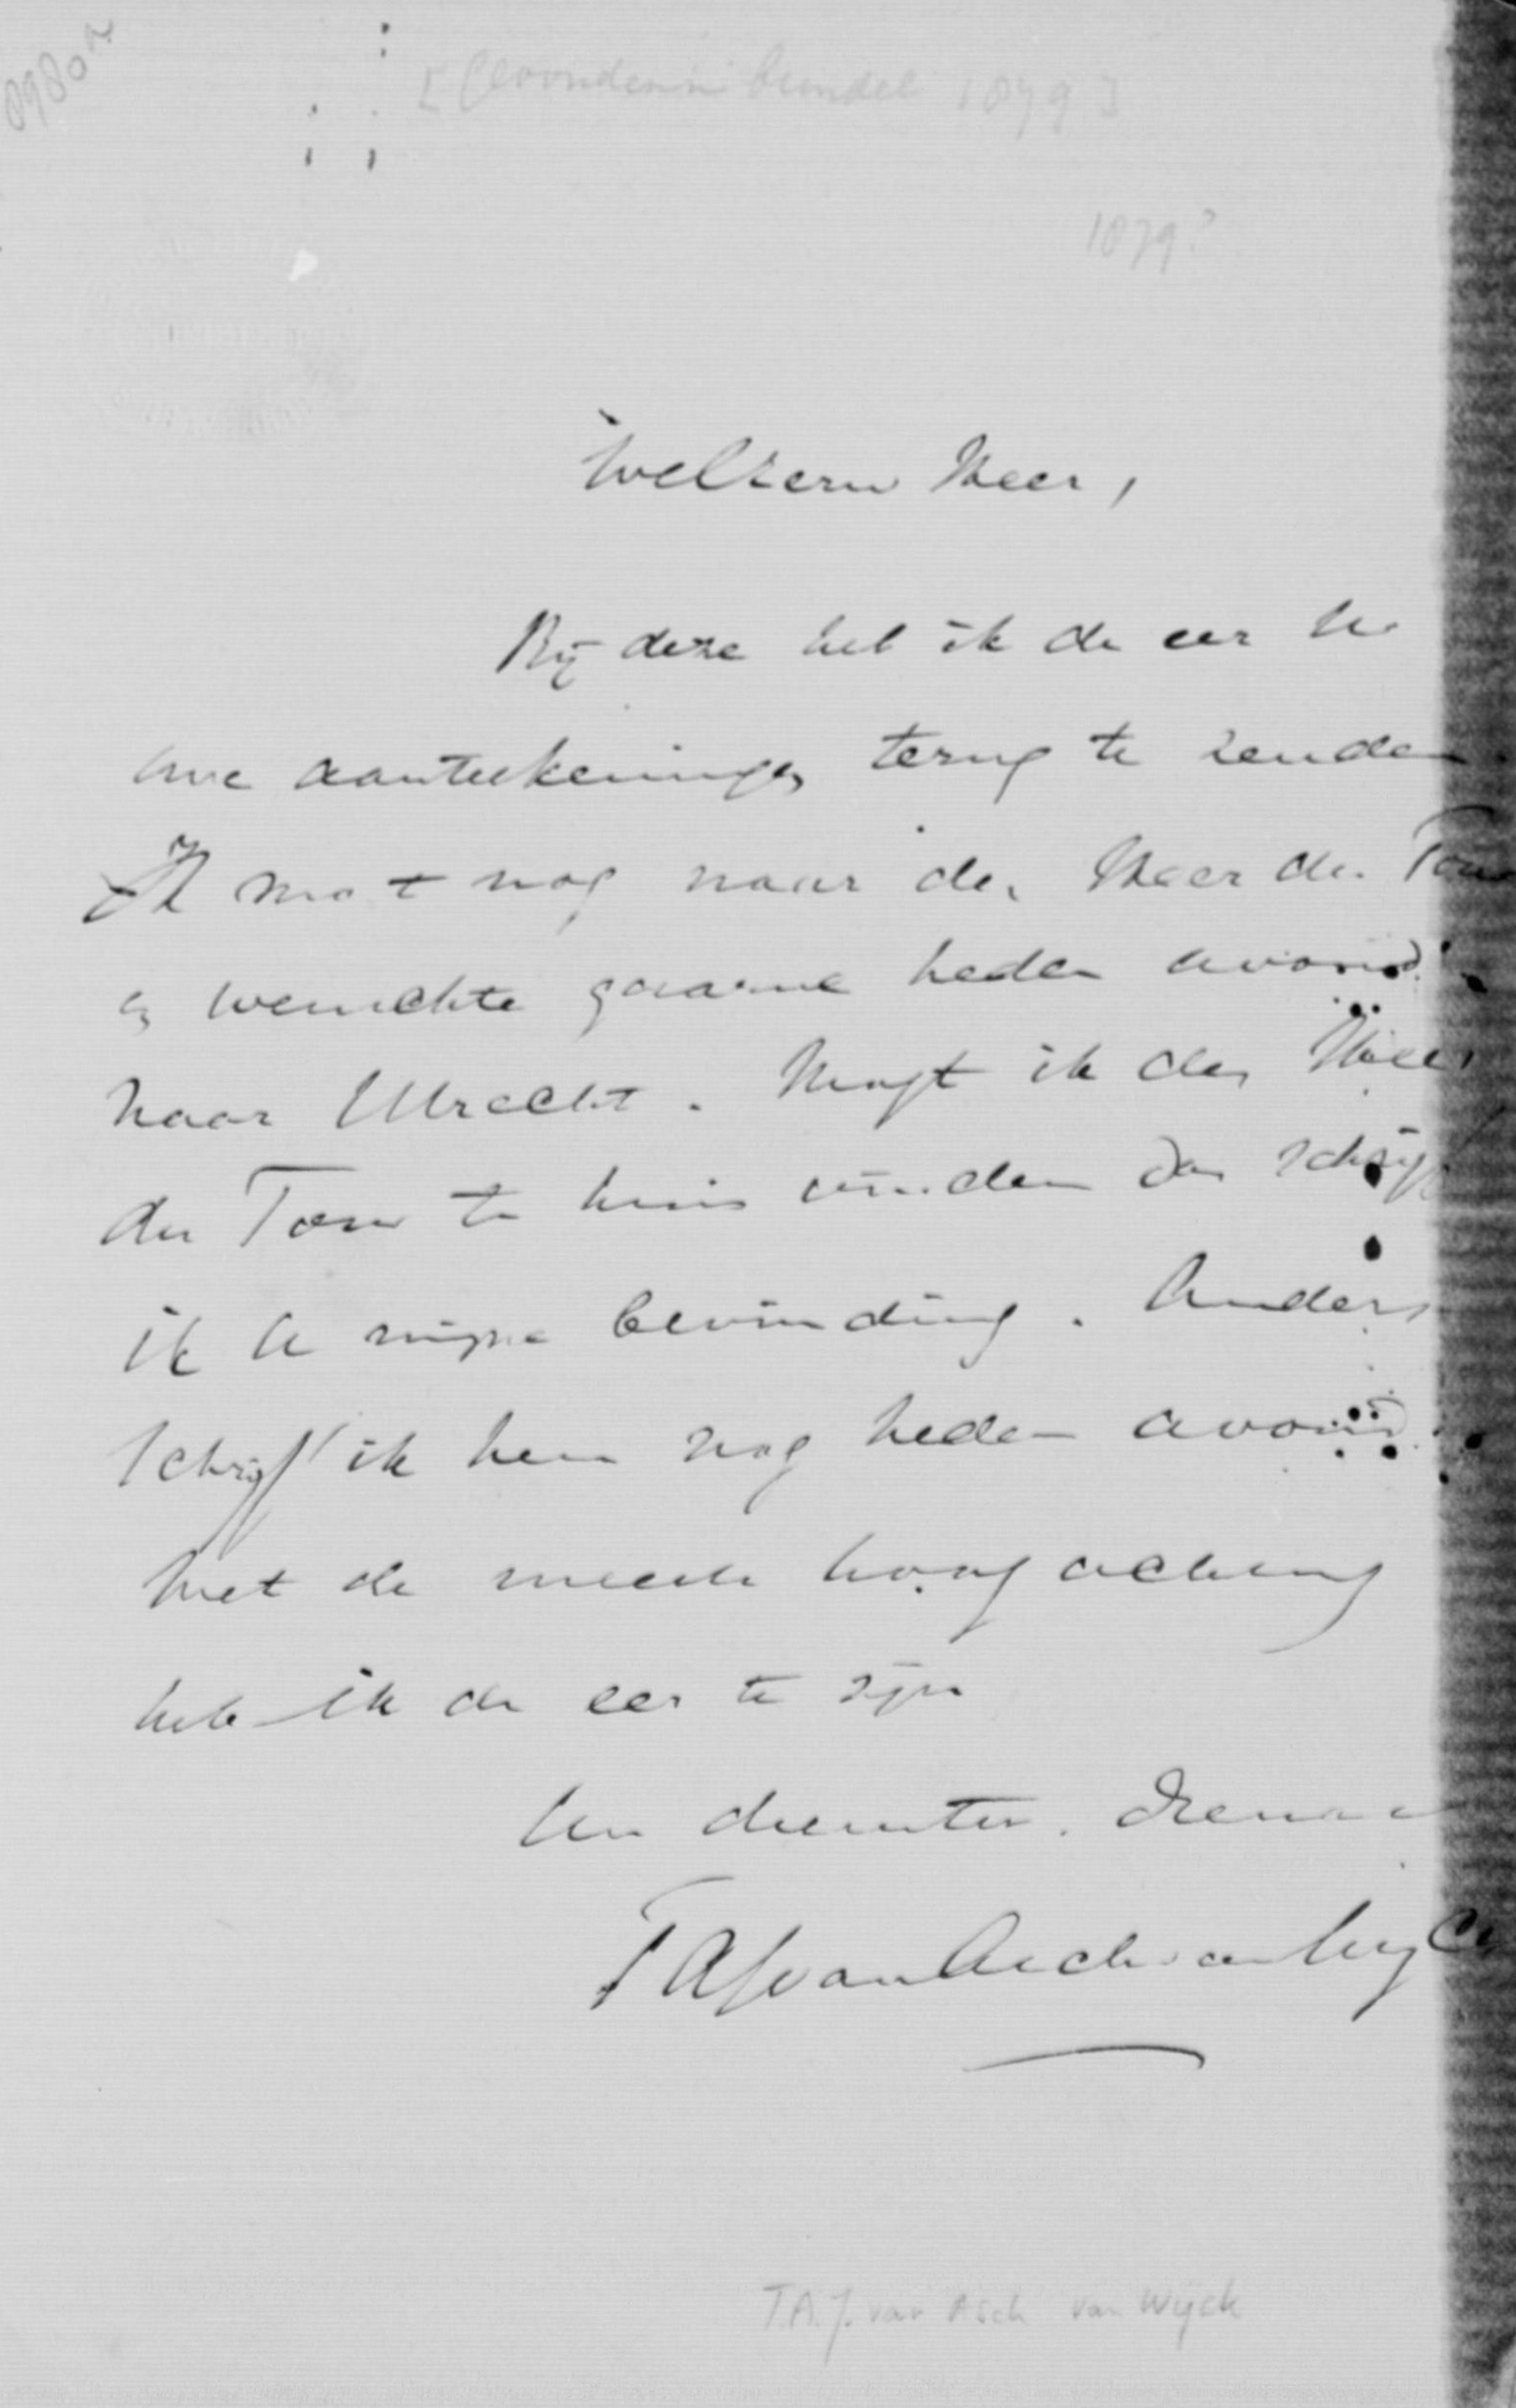 0980a
[Gevonden in bundel 1879]
1879?
WelEerw Heer,
Bij deze heb ik de eer U
uwe aanteekeningen terug te zenden.
Ik moet nog naar den Heer de
en wenschte gaarne heden avond
naar Utrecht. Mogt ik den Heer
te huis vinden dan schrijf
ik U mijne bevinding. Anders
schrijf ik hem nog heden avond.
Met de meeste hoogachting
heb ik de eer te zijn
Uw dienstw. dienaar
TAJvanAschvanWyck
T.A.J. van Asch van Wijck